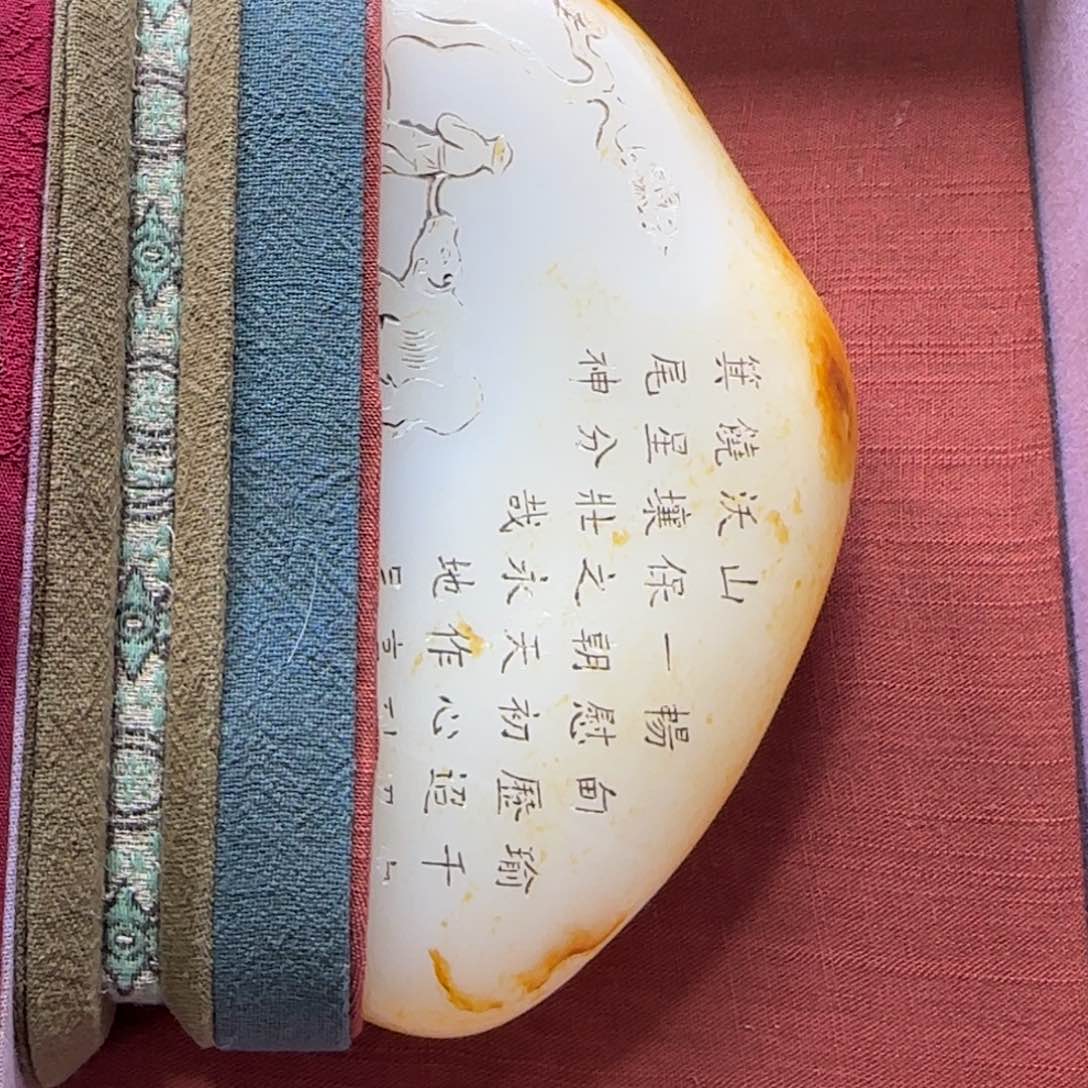 瑜千
甸歷迢
暢慰初心
一朝天作
山保之永地
沃壤壯哉
饒星分
箕尾神